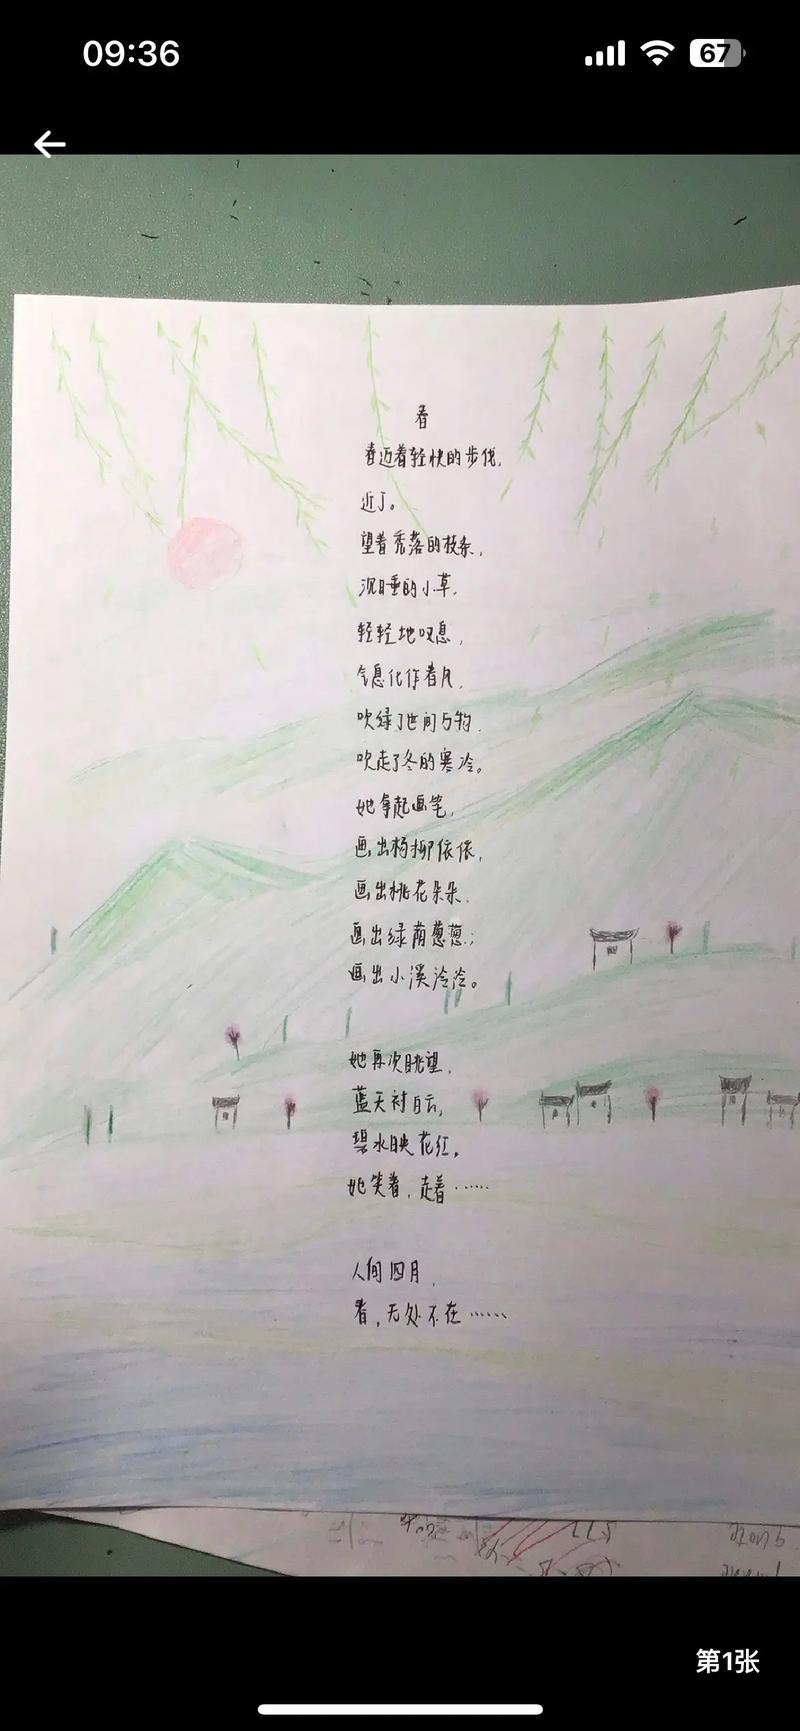 09:36
67
春
春迈着轻快的步伐,
近了。
望着秃落的枝条,
沉睡的小草,
轻轻地叹息,
气息化作春风,
吹绿了世间万物,
吹走了冬的寒冷。
她拿起画笔,
画出杨柳依依,
画出桃花朵朵,
画出绿荫葱葱;
画出小溪泠泠。
她再次眺望,
蓝天衬白云,
碧水映花红。
她笑着,走着……
人间四月,
春,无处不在……
quote
第1张